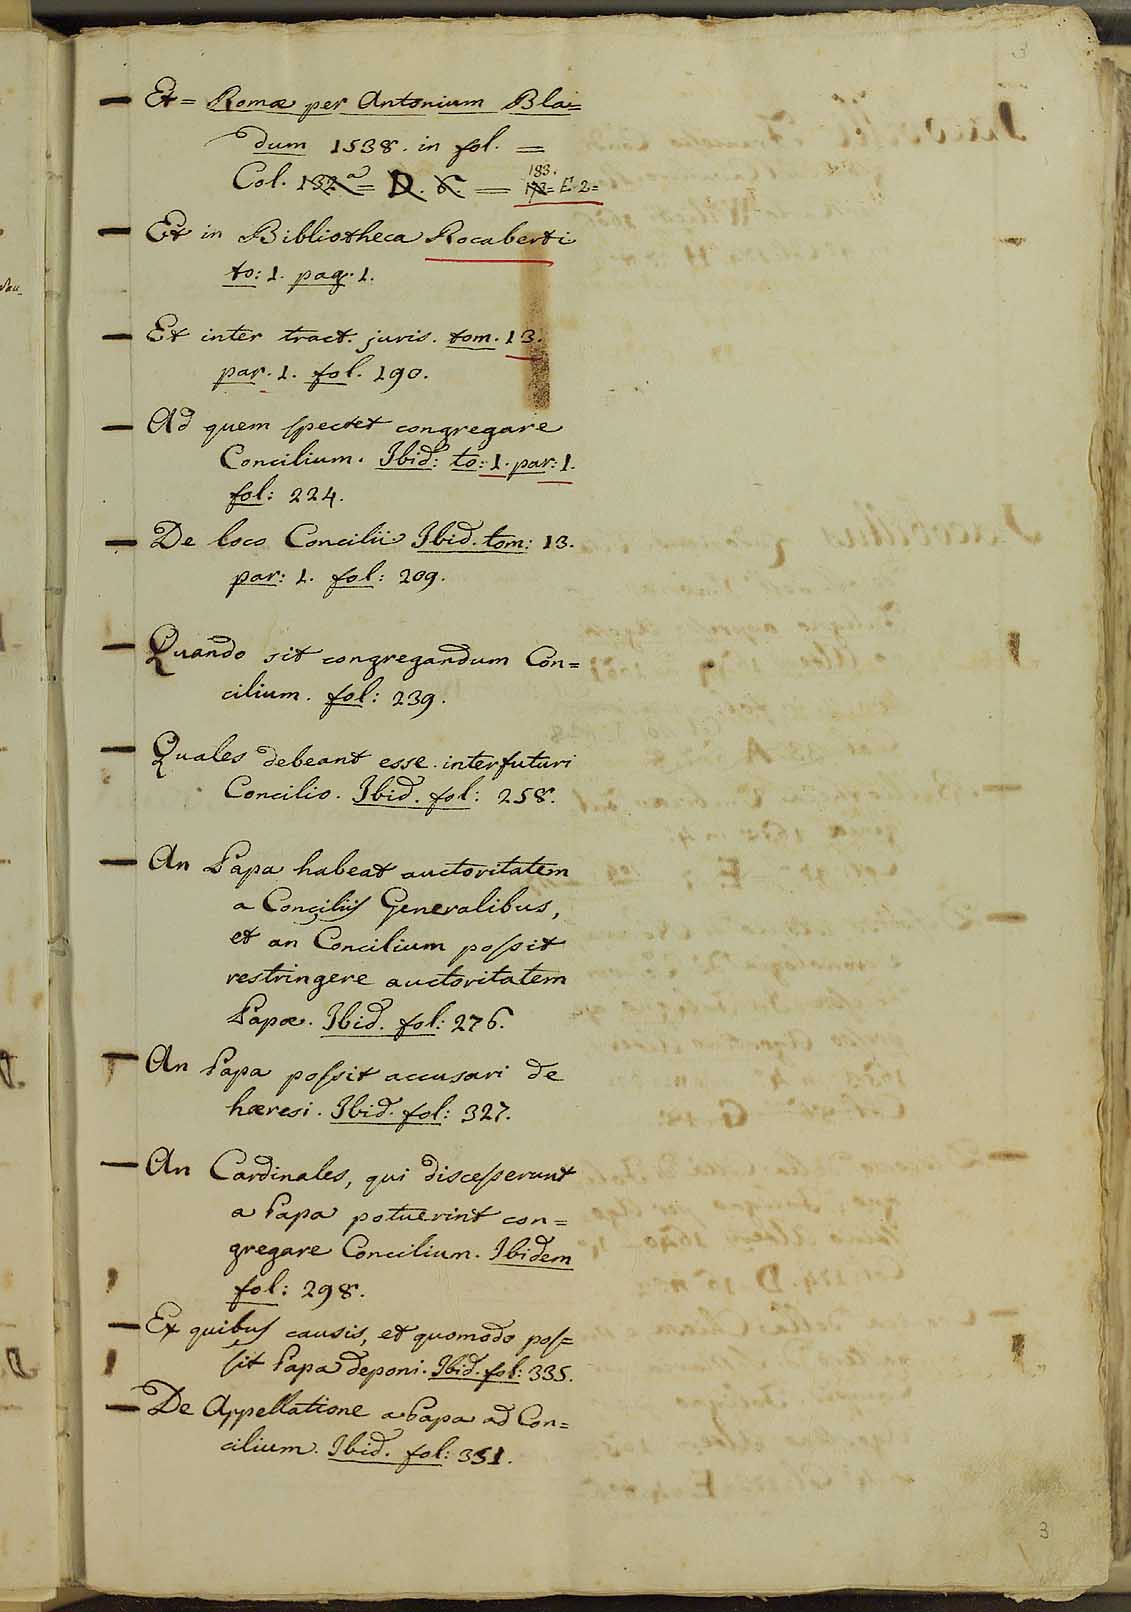 3
— Et = Romæ per Antonium Bla=
dum 1538. in fol. =
183.
Col. 132ᵃ = D. 6. = 172 = E. 2 =
— Et in Bibliotheca Rocaberti
to: 1. pag. 1.
— Et inter tract. juris. tom. 13.
par. 1. fol. 190.
— Ad quem spectet congregare
Concilium. Ibid: to: 1. par: 1.
fol: 224.
— De loco Concilii. Ibid. tom: 13.
par: 1. fol: 209.
— Quando sit congregandum Con=
cilium. fol: 239.
— Quales debeant esse interfuturi
Concilio. Ibid. fol: 258.
— An Papa habeat auctoritatem
a Conciliis Generalibus,
et an Concilium possit
restringere auctoritatem
Papæ. Ibid. fol: 276.
— An Papa possit accusari de
hæresi. Ibid. fol: 327.
— An Cardinales, qui discesserunt
a Papa potuerint con=
gregare Concilium. Ibidem
fol: 298.
— Ex quibus causis, et quomodo pos=
sit Papa deponi. Ibid. fol: 335.
— De Appellatione a Papa ad Con=
cilium. Ibid. fol: 351.
3